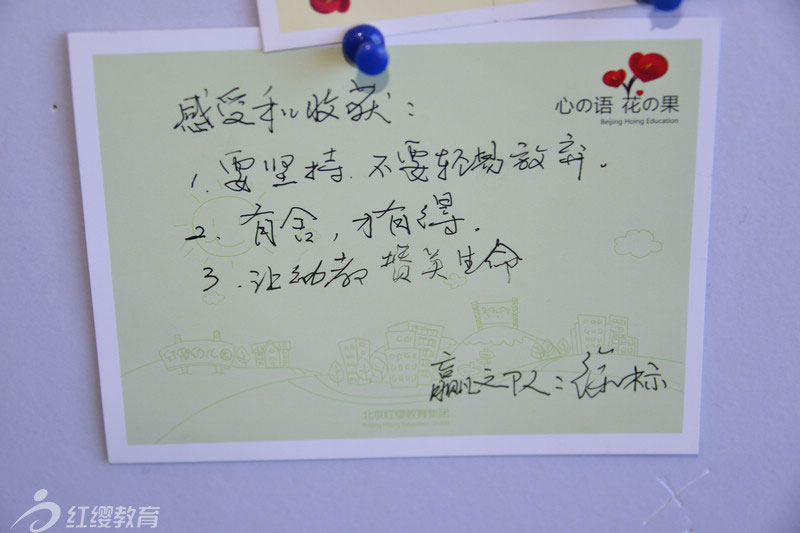 心の语 花の果
Beijing Hoing Education
感受和收获：
1. 要坚持. 不要轻易放弃。
2. 有舍，才有得.
3. 让幼教 赞美生命
赢之队：徐标
北京红缨教育集团
Beijing Hoing Education Group
红缨教育